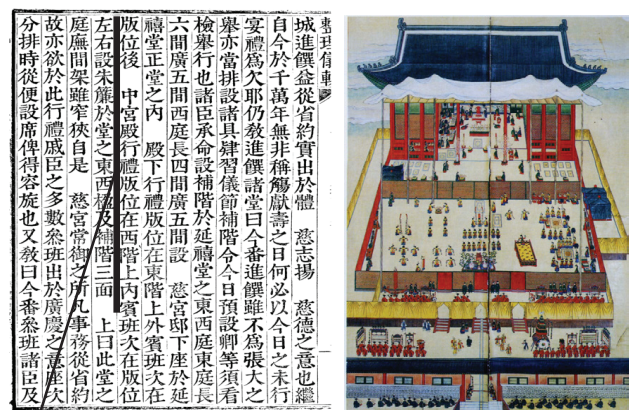 整理儀軌
城進饌益從省約實出於體　慈志揚　慈德之意也繼
自今於千萬年無非稱觴獻壽之日何必以今日之未行
宴禮爲欠耶仍敎進饌諸堂曰今番進饌雖不爲張大之
擧亦當排設諸具肄習儀節補階令今日預設卿等須看
檢擧行也諸臣承命設補階於延禧堂之東西庭東庭長
六間廣五間西庭長四間廣五間設　慈宮邸下座於延
禧堂正堂之內　殿下行禮版位在東階上外賓班次在
版位後　中宮殿行禮版位在西階上內賓班次在版位
左右設朱簾於堂之東西楹及補階三面　上曰此堂之
庭廡間架雖窄狹自是　慈宮常御之所凡事務從省約
故亦欲於此行禮戚臣之多數叅班出於廣慶之意座次
分排時從便設席俾得容旋也又敎曰今番叅班諸臣及